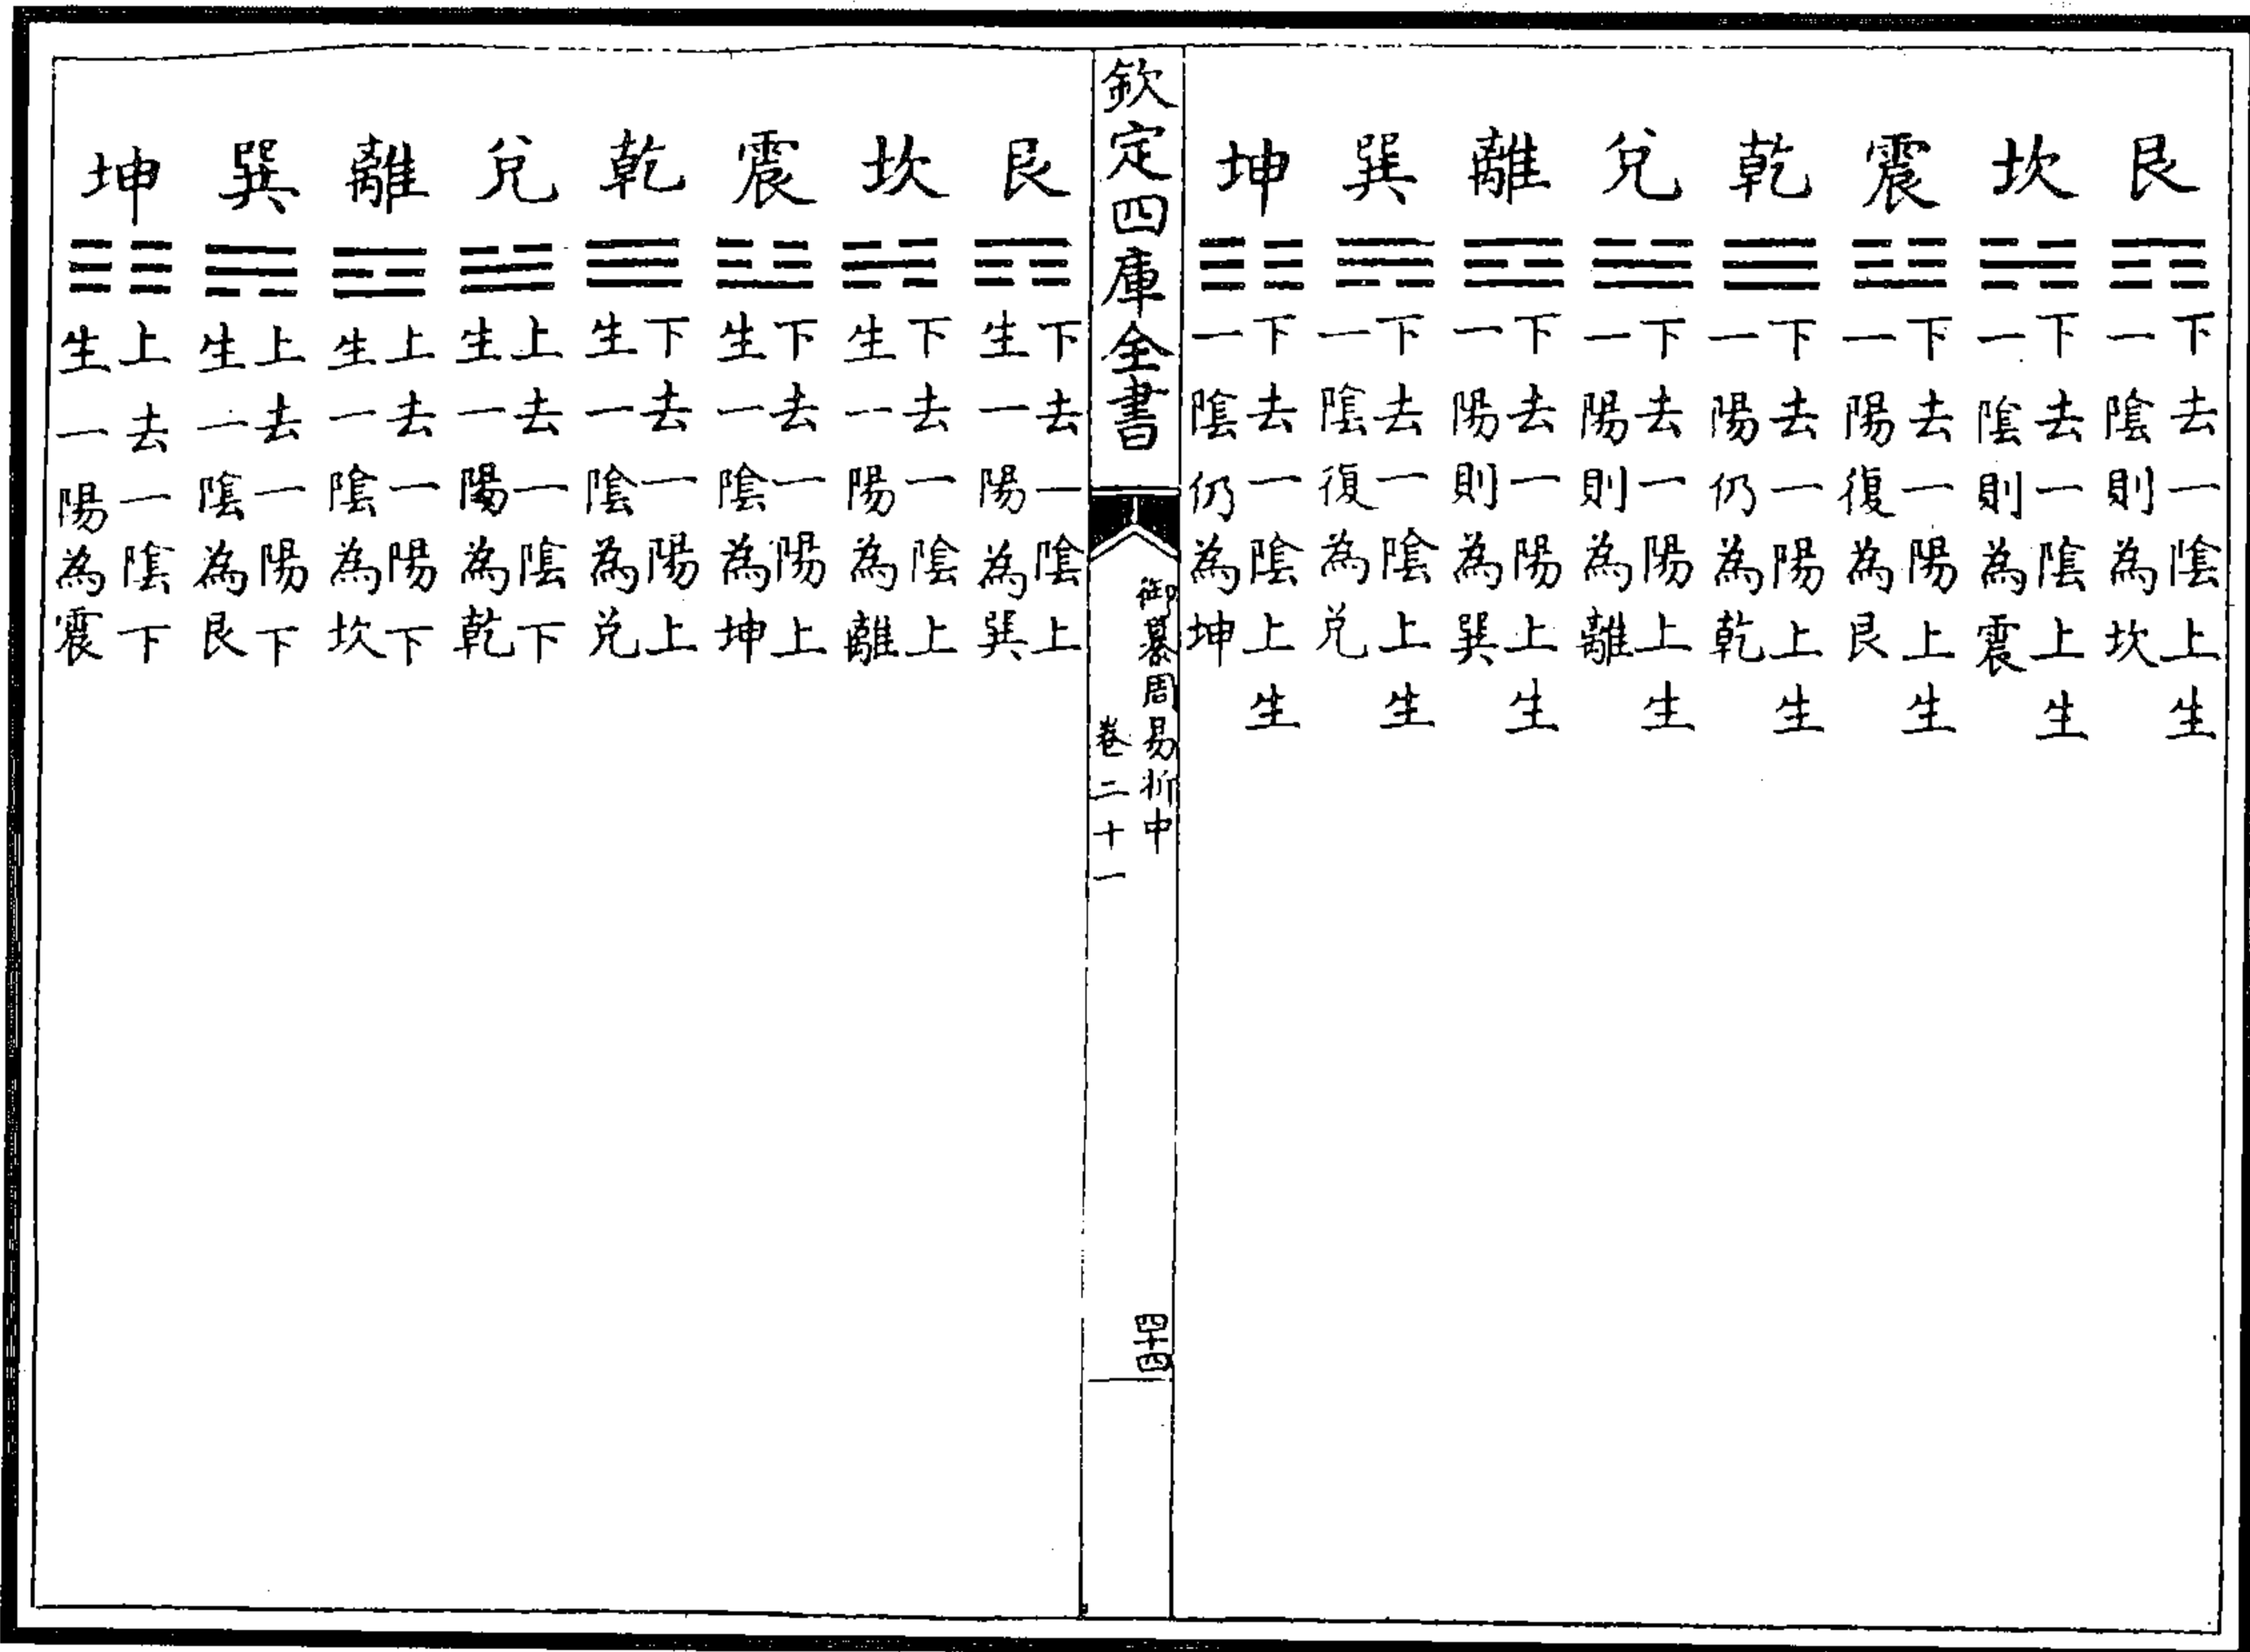 艮☶下去一陰上生
一陰則為坎
坎☵下去一陰上生
一陰則為震
震☳下去一陽上生
一陽復為艮
乾☰下去一陽上生
一陽仍為乾
兌☱下去一陽上生
一陽則為離
離☲下去一陽上生
一陽則為巽
巽☴下去一陰上生
一陰復為兌
坤☷下去一陰上生
一陰仍為坤
欽定四庫全書
御纂周易折中
卷二十一
四十四
艮☶下去一陰上
生一陽為巽
坎☵下去一陰上
生一陽為離
震☳下去一陽上
生一陰為坤
乾☰下去一陽上
生一陰為兌
兌☱上去一陰下
生一陽為乾
離☲上去一陽下
生一陰為坎
巽☴上去一陽下
生一陰為艮
坤☷上去一陰下
生一陽為震